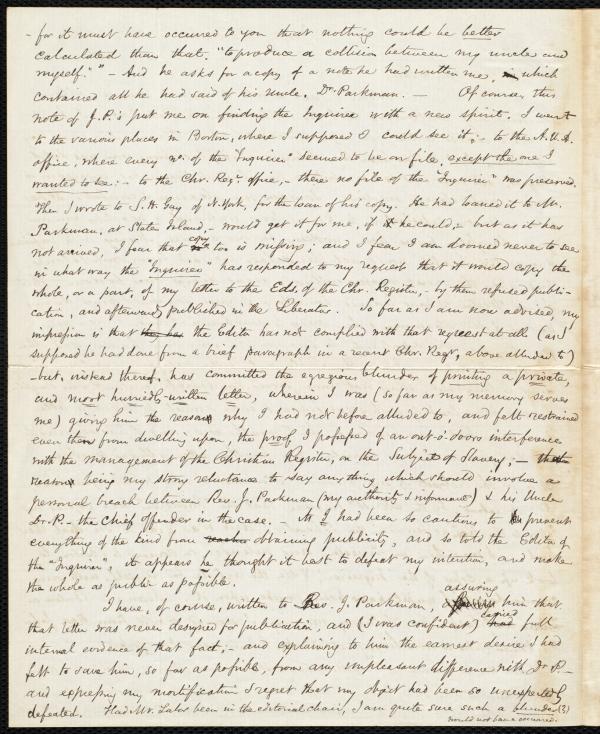 - for it must have occurred to you that nothing could be better
calculated than that, "to produce a collision between my uncle and
myself." " - And he asks for a copy of a note he had written me, which
contained all he had said of his Uncle, Dr. Parkman. — Of course, this
note of J.P.'s put me on finding the Inquirer with a new spirit. I went
to the various places in Boston, where I supposed I could see it; - to the A.U.A.
office, where every no. of the "Inquirer" seemed to be on file, except the one I
wanted to see; - to the Chr. Regr. office, - there no file of the "Inquirer" was preserved.
Then I wrote to S. H. Gay of N. York, for the loan of his copy. He had loaned it to Mr.
Parkman, at Staten Island, - would get it for me, if he could; - but as it has
not arrived, I fear that copy too is missing; and I fear I am doomed never to see
in what way the "Inquirer" has responded to my request that it would copy the
whole, or a part, of my letter to the Eds. of the Chr. Register, - by them refused publi-
cation, and afterwards published in the Liberator. So far as I am now advised, my
impression is that the Editor has not complied with that request at all (as I
supposed he had done from a brief paragraph in a recent Chr. Regr., above alluded to)
- but, instead thereof, has committed the egregious blunder of printing a private,
and most hurriedly-written letter, wherein I was (so far as my memory serves
me) giving him the reasons why I had not before alluded to, and felt restrained
even then from dwelling upon, the proof I possessed of an out-o'-doors interference
with the management of the Christian Register, on the subject of Slavery; -
reasons being my strong reluctance to say anything which should involve a
personal breach between Rev. J. Parkman (my authority & informant) & his Uncle
Dr. P. - the chief offender in the case. - As I had been so cautious to prevent
everything of the kind from obtaining publicity, and so told the Editor of
the "Inquirer", it appears he thought it best to defeat my intention, and make
the whole as public as possible.
I have, of course, written to Rev. J. Parkman, assuring him that
that letter was never designed for publication, and (I was confident) carried full
internal evidence of that fact; - and explaining to him the earnest desire I had
felt to save him, so far as possible, from any unpleasant difference with Dr. P. -
and expressing my mortification & regret that my object had been so unexpectedly
defeated. Had Mr. Lalor been in the editorial chair, I am quite sure such a blunder (?)
would not have occurred.